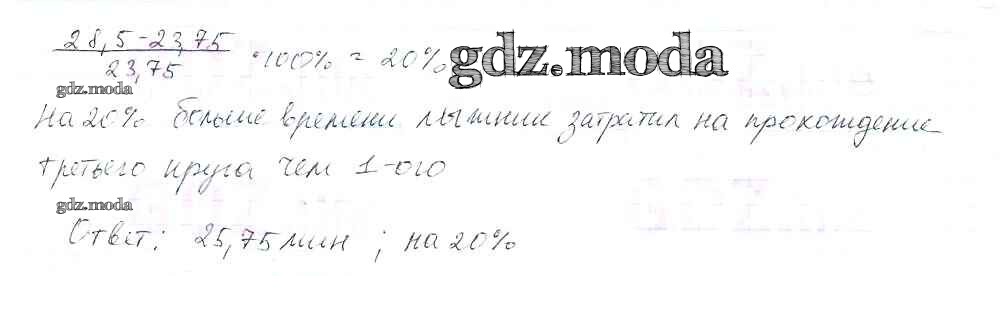 28,5-23,75
23,75
·100% = 20%
gdz.moda
gdz.moda
На 20% больше времени лыжник затратил на прохождение
третьего круга чем 1-ого
gdz.moda
Ответ: 25,75 мин ; на 20%